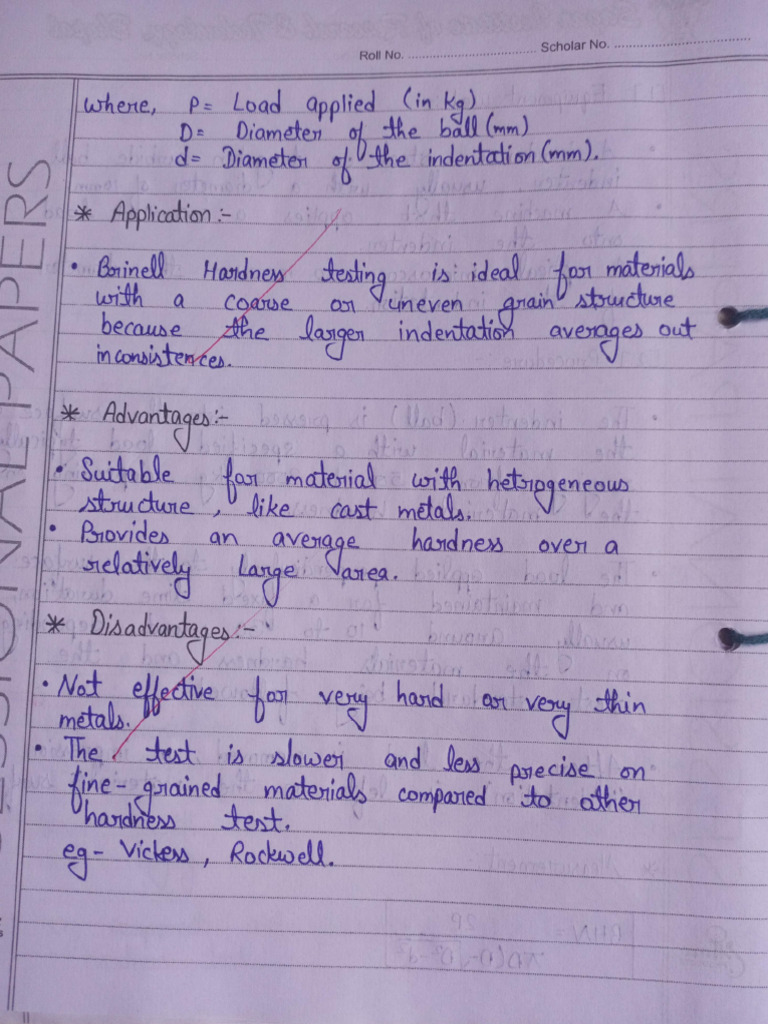 Roll No. .......................................... Scholar No. ..........................................
where, P= Load applied (in kg)
D= Diameter of the ball (mm)
d= Diameter of the indentation (mm).
* Application:-
• Brinell Hardness testing is ideal for materials
with a coarse or uneven grain structure
because the larger indentation averages out
inconsistences.
* Advantages:-
• Suitable for material with hetrogeneous
structure, like cast metals.
• Provides an average hardness over a
relatively large area.
* Disadvantages:-
• Not effective for very hard or very thin
metals.
• The test is slower and less precise on
fine-grained materials compared to other
hardness test.
eg- Vickess, Rockwell.
SESSIONAL PAPERS